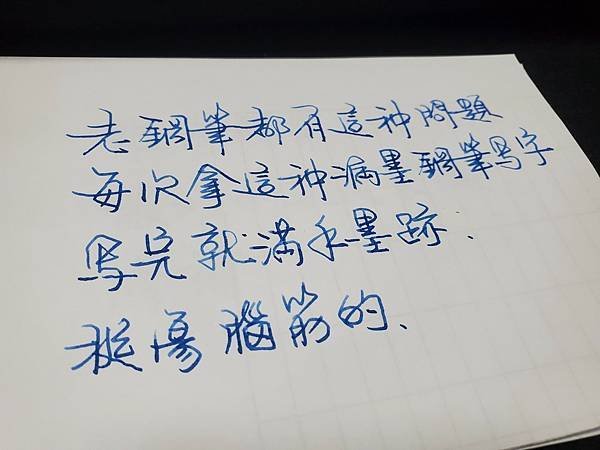 老鋼筆都有這种問題
每次拿這种漏墨鋼筆写字
写完就滿手墨跡.
挺傷腦筋的、